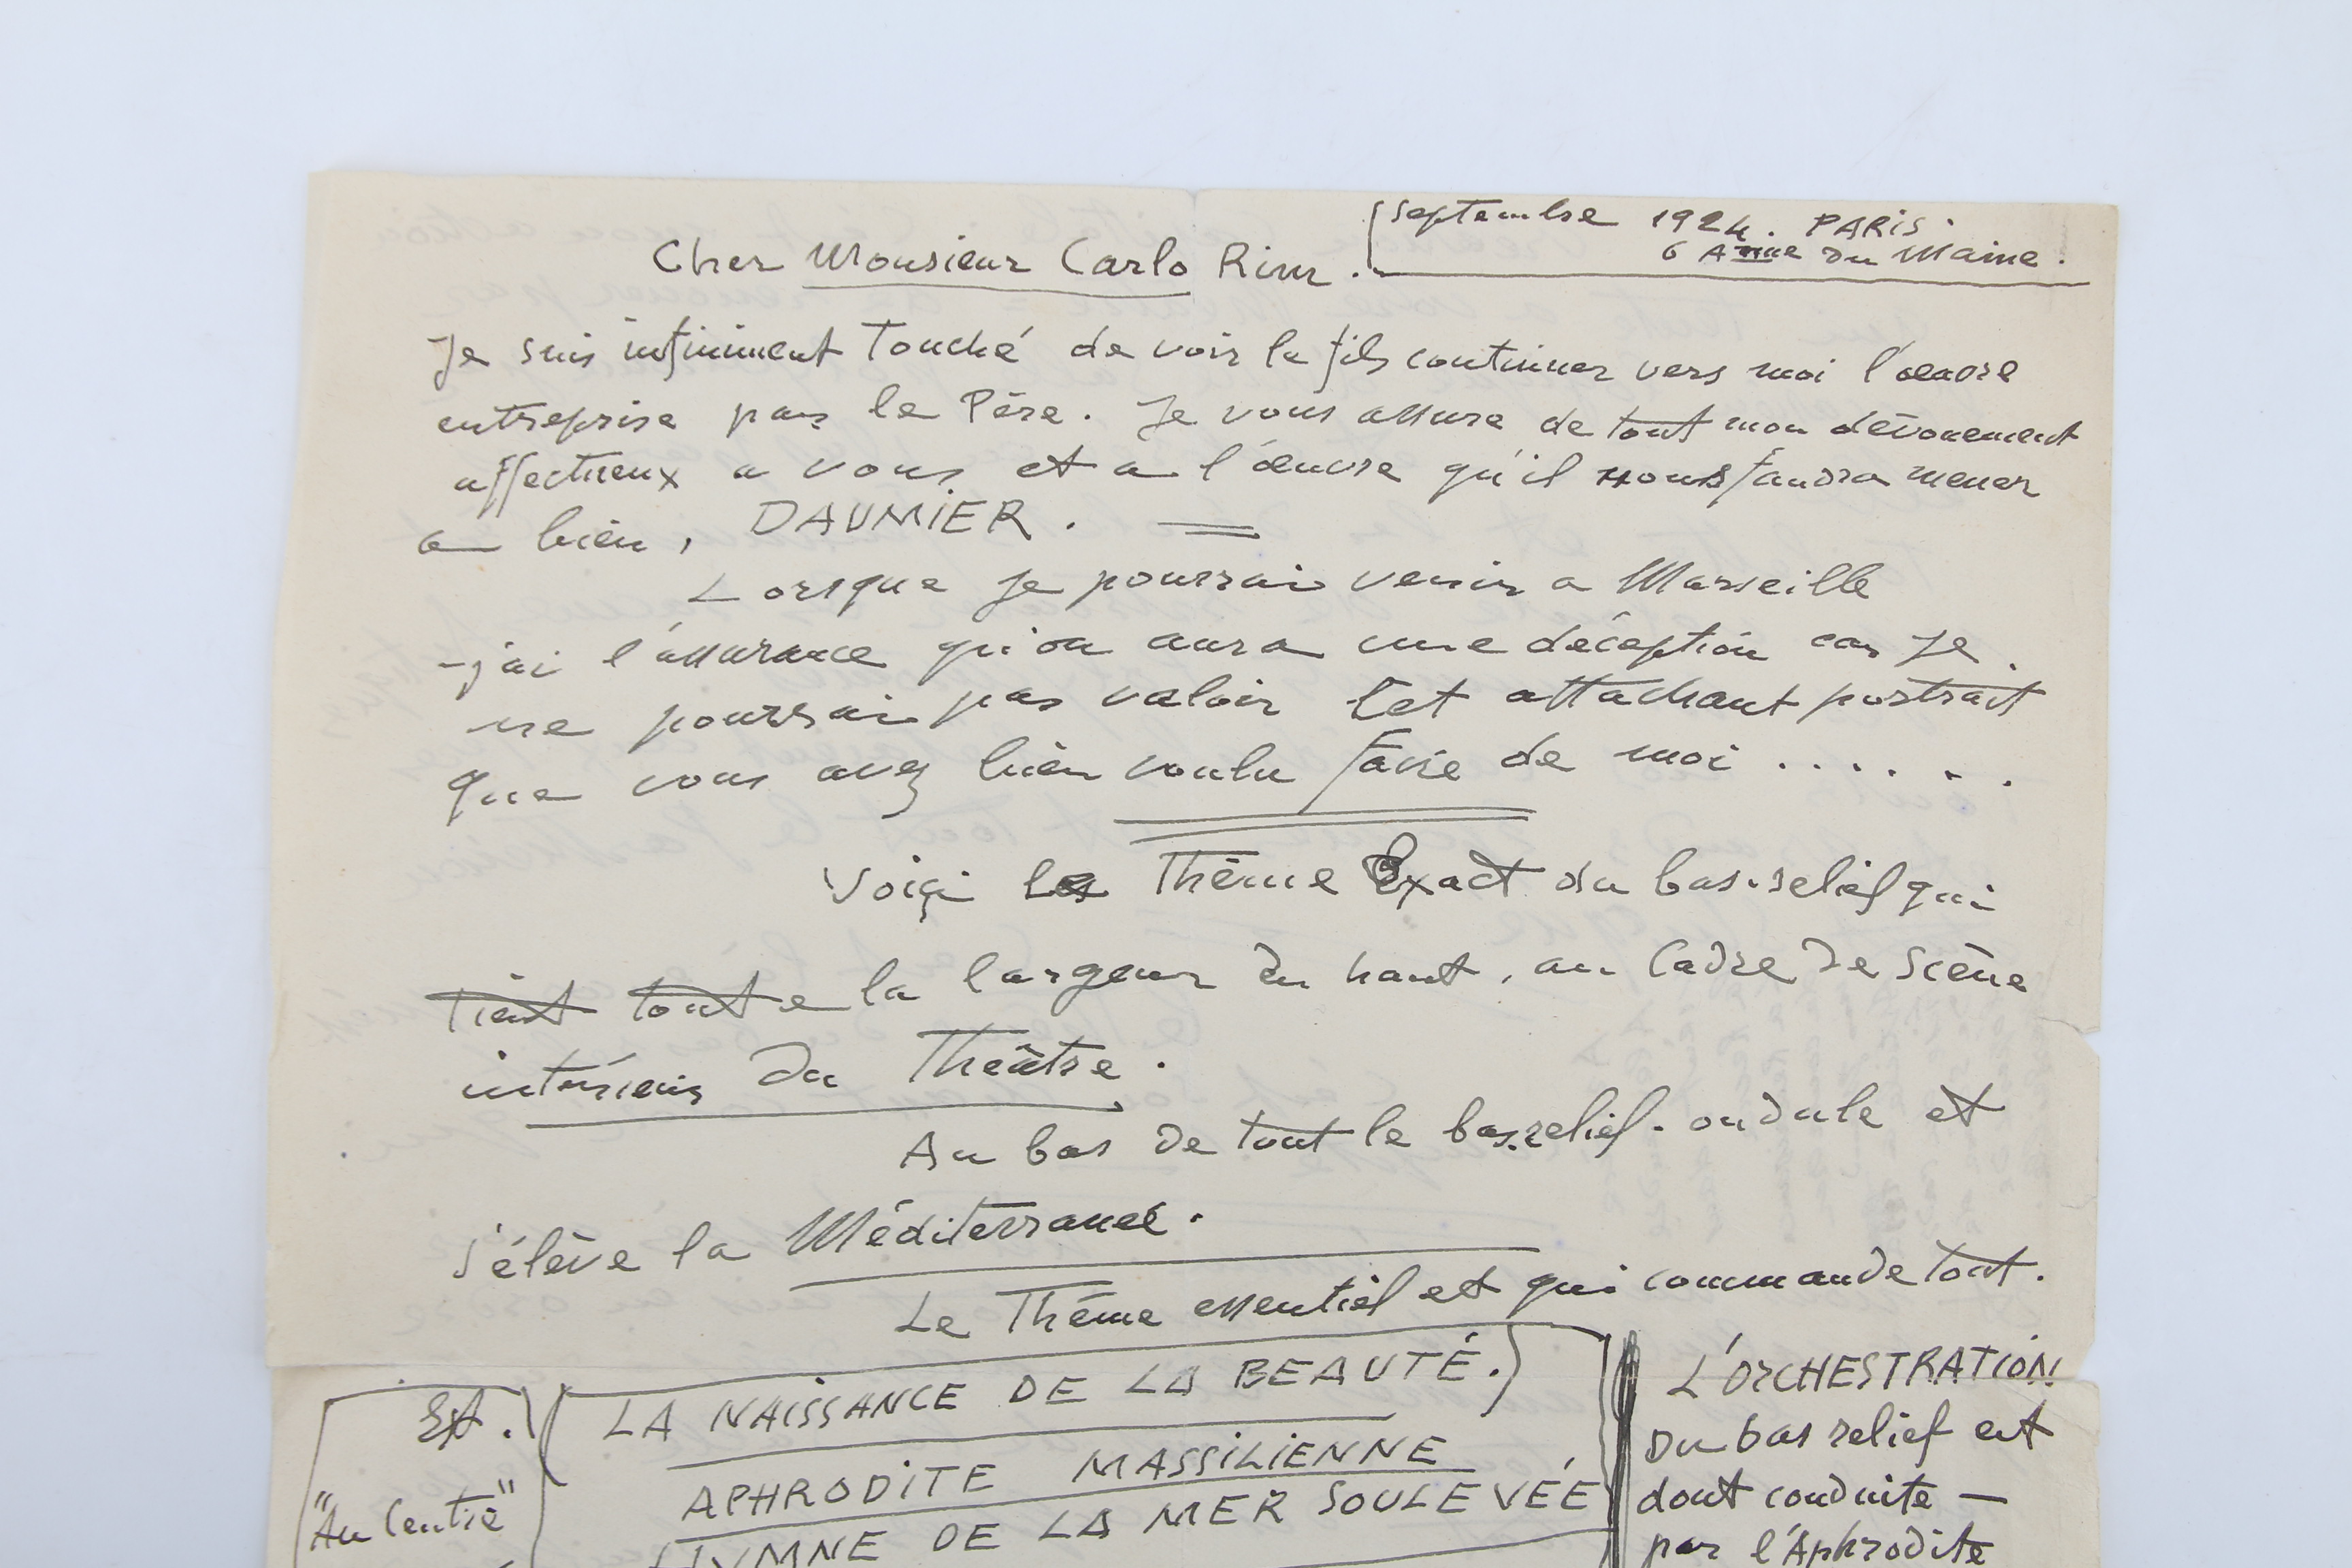 septembre 1924. PARIS.
6 Anue du Maine.
Cher Monsieur Carlo Rim.
Je suis infiniment Touché de voir le fils continuer vers moi l'oeuvre
entreprise par le Père. Je vous assure de tout mon dévouement
affectueux a vous et a l'oeuvre qu'il nous faudra mener
a bien, DAUMiER. =
Lorsque je pourrai venir a Marseille
-j'ai l'assurance qu'on aura une déception car je.
ne pourrai pas valoir Cet attachant portrait
que vous avez bien voulu faire de moi ......
Voiçi le Thème Exact du bas-relief qui
Tient toute la largeur du haut, au Cadre de Scène
intérieur du Théâtre.
Au bas de tout le bas.relief. ondule et
s'élève la Méditerranée.
Le Thème essentiel est qui commande tout.
Est.
LA NAiSSANCE DE LA BEAUTÉ.
APHRODiTE MASSiLiENNE
HYMNE DE LA MER SOULEVÉE
"Au Centre"
L'ORCHESTRATiON
Du bas relief est
dont conduite —
par l'Aphrodite